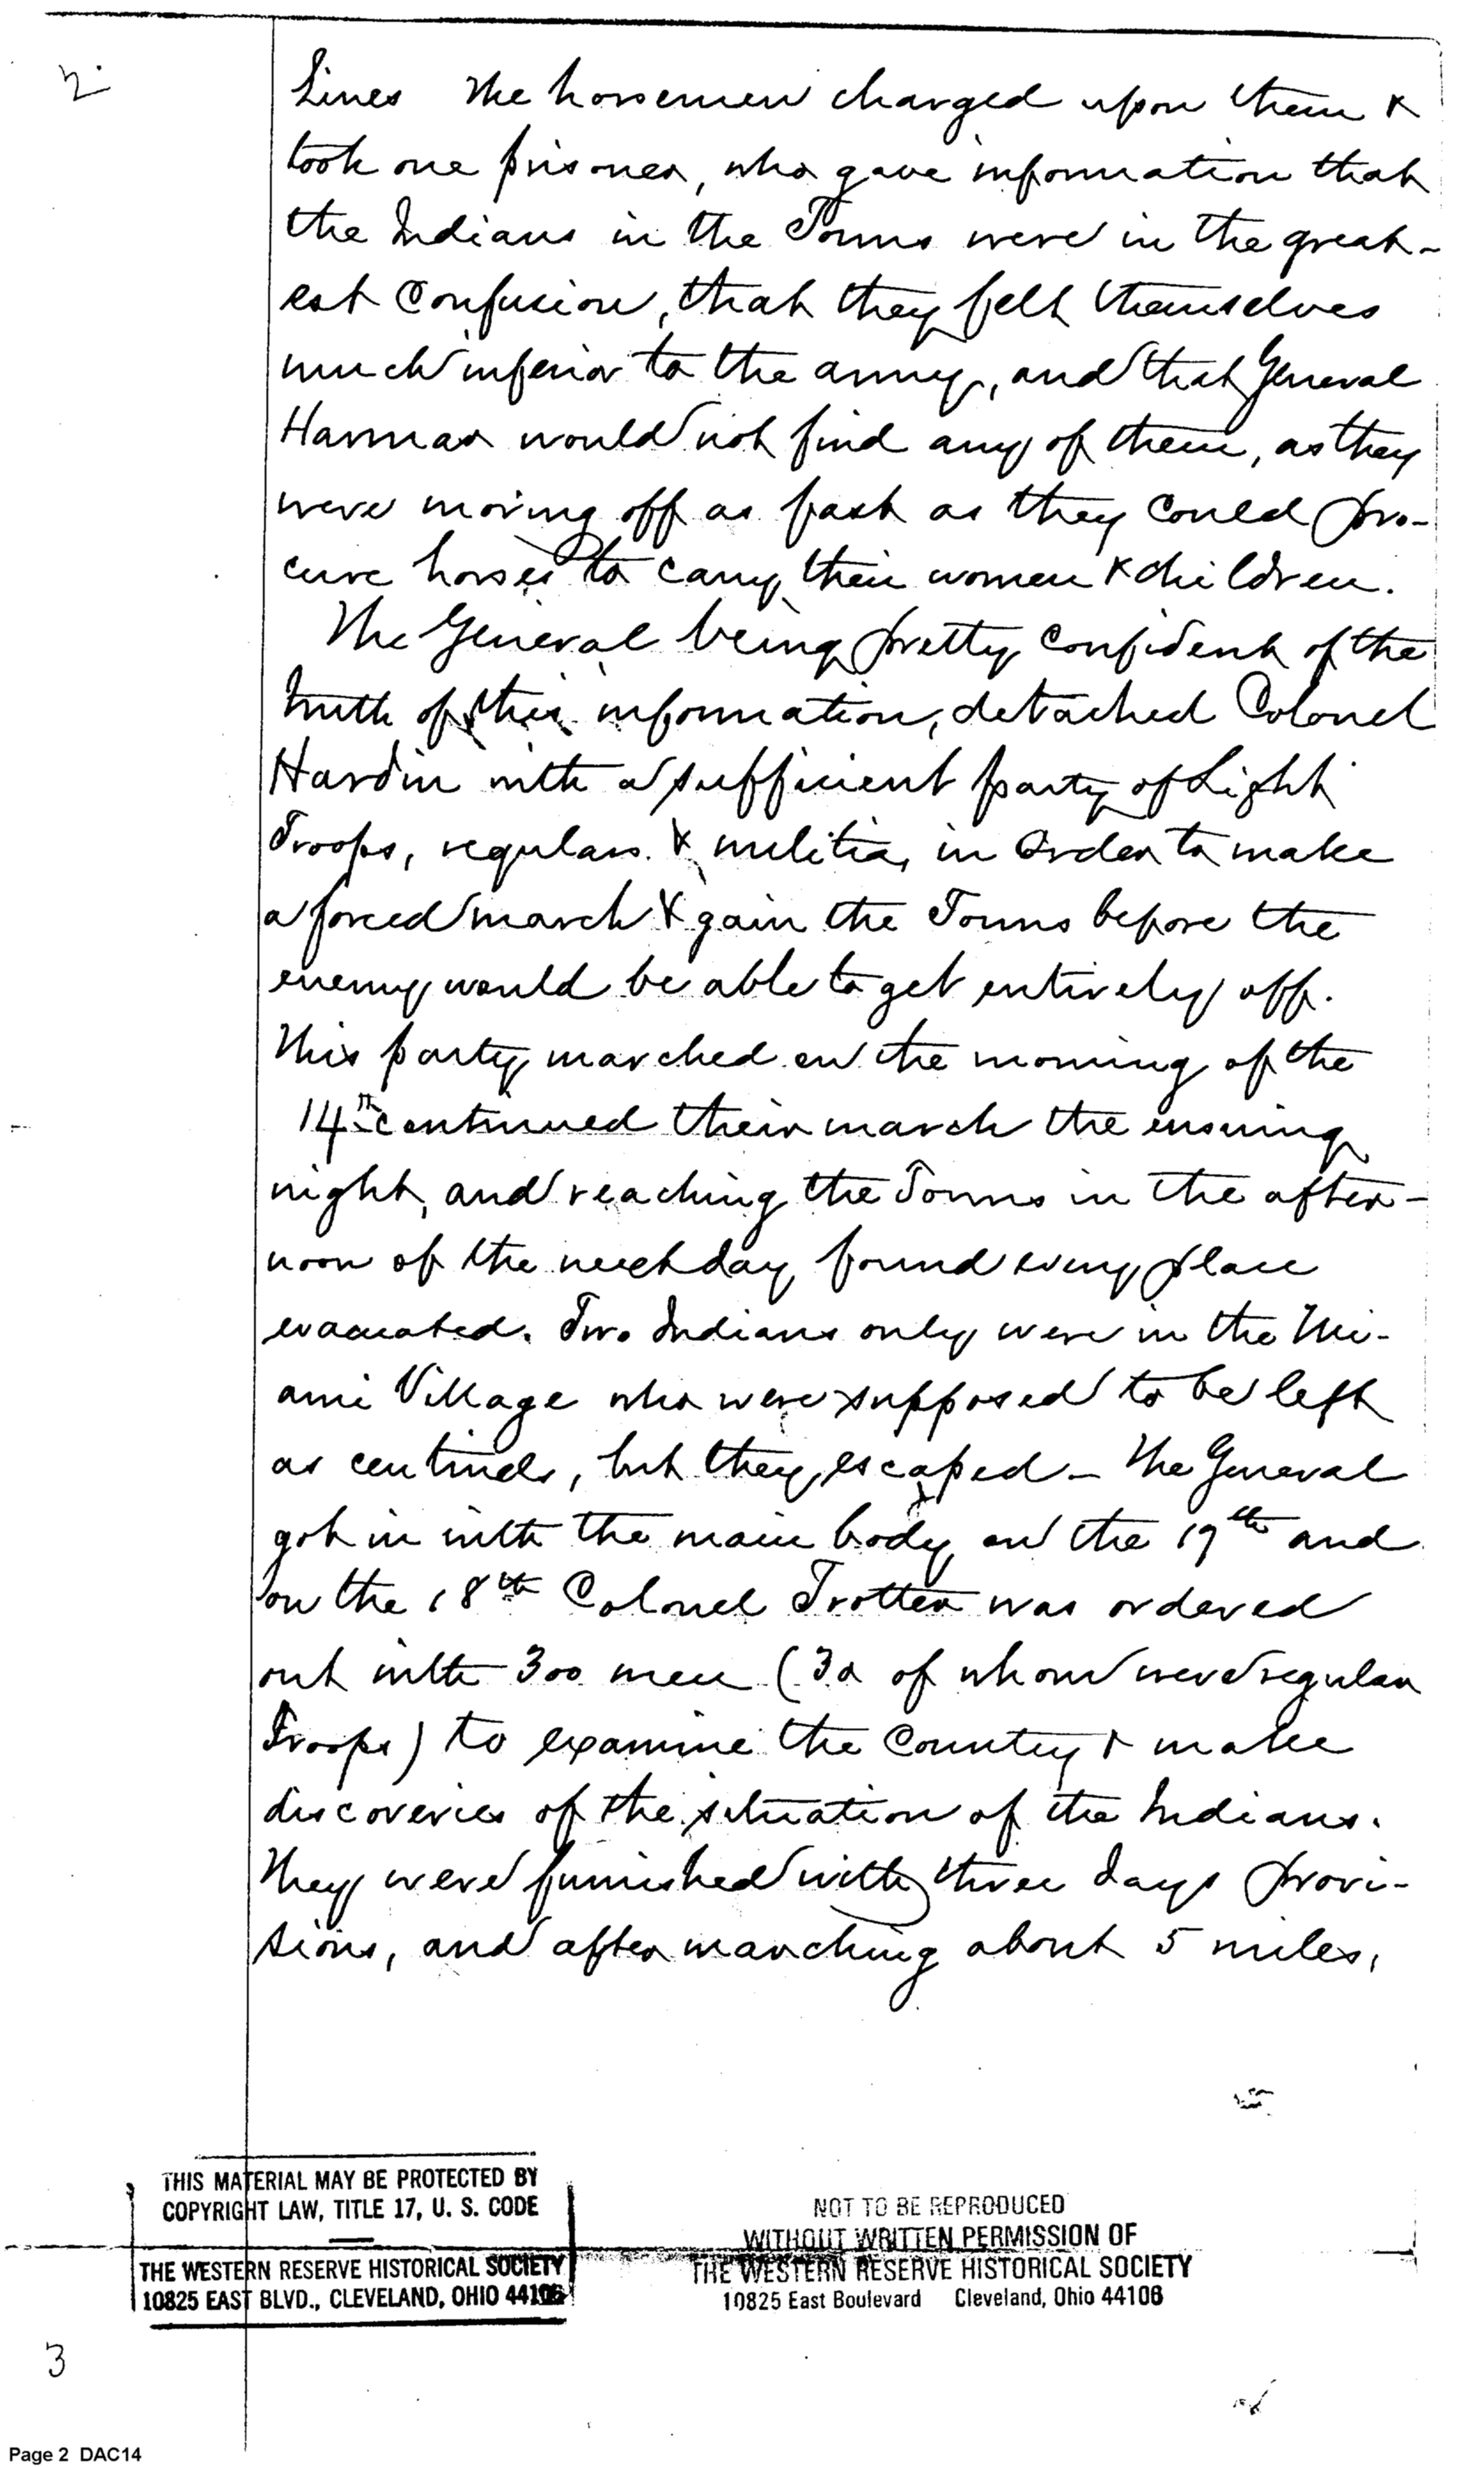 2.
Lines The horsemen charged upon them &
took one prisoner, who gave information that
the Indians in the Towns were in the great-
est Confusion, that they felt themselves
much inferior to the army, and that General
Harmar would not find any of them, as they
were moving off as fast as they Could pro-
cure horses to carry their women & children.
The General being pretty Confident of the
truth of this information, detached Colonel
Hardin with a sufficient party of Light
Troops, regulars & militia, in Order to make
a forced march & gain the Towns before the
enemy would be able to get entirely off.
This party marched on the morning of the
14th continued their march the ensuing
night, and reaching the Towns in the after-
noon of the next day, found every place
evacuated. Two Indians only were in the Mi-
ami Village who were supposed to be left
as centinels, but they escaped - The General
got in with the main body on the 17th and
on the 18th Colonel Trotter was ordered
out with 300 men (30 of whom were regular
Troops) to examine the Country & make
discoveries of the situation of the Indians.
They were furnished with three days provi-
sions, and after marching about 5 miles,
THIS MATERIAL MAY BE PROTECTED BY
COPYRIGHT LAW, TITLE 17, U. S. CODE
THE WESTERN RESERVE HISTORICAL SOCIETY
10825 EAST BLVD., CLEVELAND, OHIO 44106
NOT TO BE REPRODUCED
WITHOUT WRITTEN PERMISSION OF
THE WESTERN RESERVE HISTORICAL SOCIETY
10825 East Boulevard Cleveland, Ohio 44106
3
Page 2 DAC14